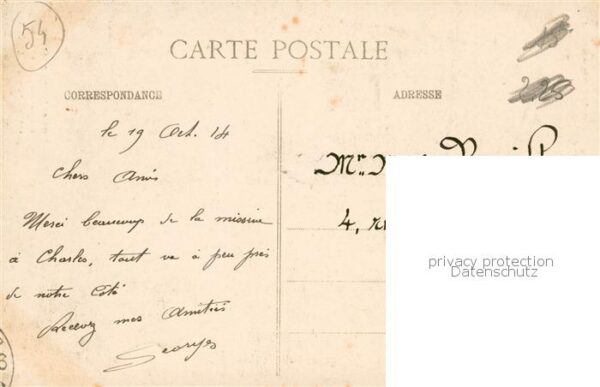 54
CARTE POSTALE
CORRESPONDANCE
ADRESSE
le 19 Oct. 14
Chers Amis
Merci beaucoup de la missive
à Charles, tout va à peu près
de notre Côté
Recevez mes Amitiés
Georges
Mr
4, ru
privacy protection
Datenschutz